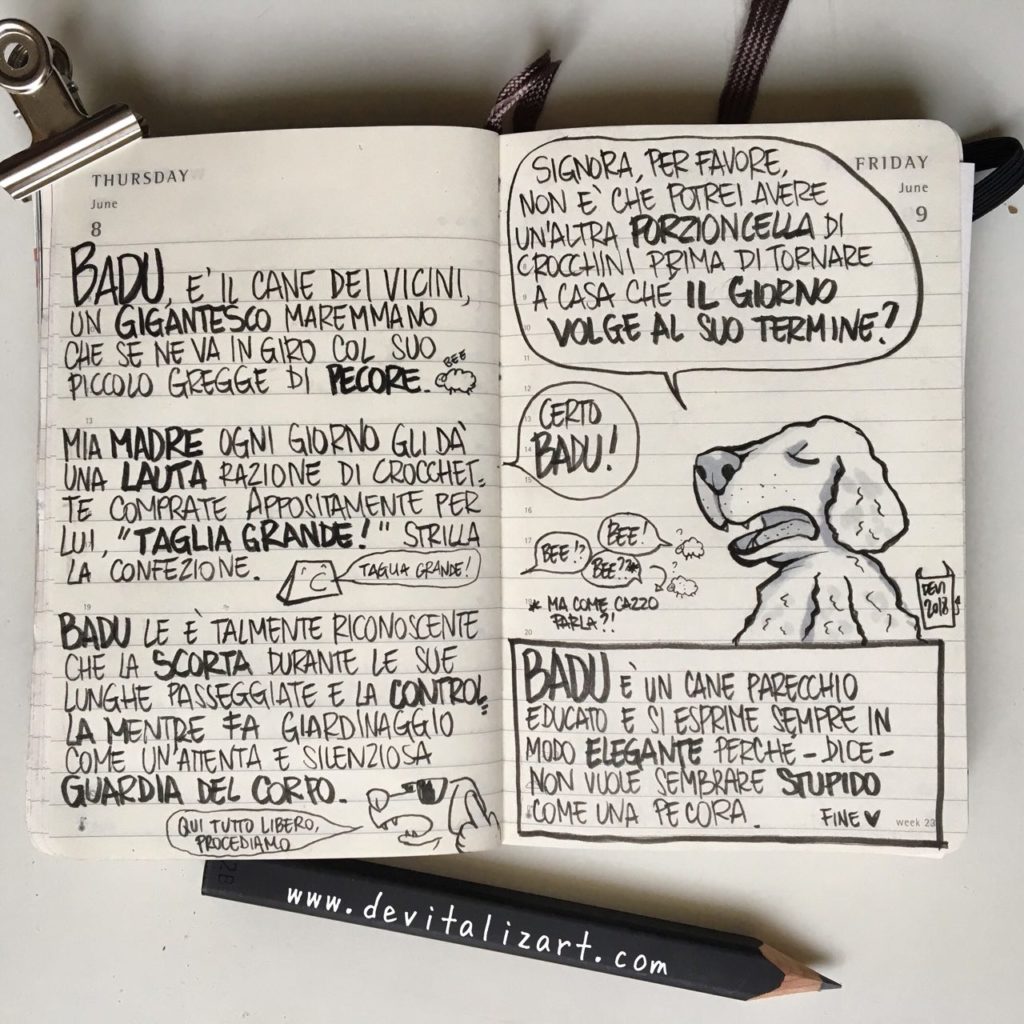 THURSDAY
June
8
BADU, E' IL CANE DEI VICINI,
UN GIGANTESCO MAREMMANO
CHE SE NE VA IN GIRO COL SUO
PICCOLO GREGGE DI PECORE.
BEE
13
MIA MADRE OGNI GIORNO GLI DA'
UNA LAUTA RAZIONE DI CROCCHET-
TE COMPRATE APPOSITAMENTE PER
LUI, "TAGLIA GRANDE!" STRILLA
LA CONFEZIONE.
C
TAGLIA GRANDE!
19
BADU LE È TALMENTE RICONOSCENTE
CHE LA SCORTA DURANTE LE SUE
LUNGHE PASSEGGIATE E LA CONTROL-
LA MENTRE FA GIARDINAGGIO
COME UN'ATTENTA E SILENZIOSA
GUARDIA DEL CORPO.
QUI TUTTO LIBERO,
PROCEDIAMO
FRIDAY
June
9
SIGNORA, PER FAVORE,
NON E' CHE POTREI AVERE
UN'ALTRA PORZIONCELLA DI
CROCCHINI PRIMA DI TORNARE
A CASA CHE IL GIORNO
VOLGE AL SUO TERMINE?
10
11
12
CERTO
BADU!
15
17
BEE!
BEE!?
BEE??*
* MA COME CAZZO
PARLA?!
20
DEVI
2018
BADU È UN CANE PARECCHIO
EDUCATO E SI ESPRIME SEMPRE IN
MODO ELEGANTE PERCHE - DICE -
NON VUOLE SEMBRARE STUPIDO
COME UNA PECORA.
FINE
week 23
2B
www.devitalizart.com